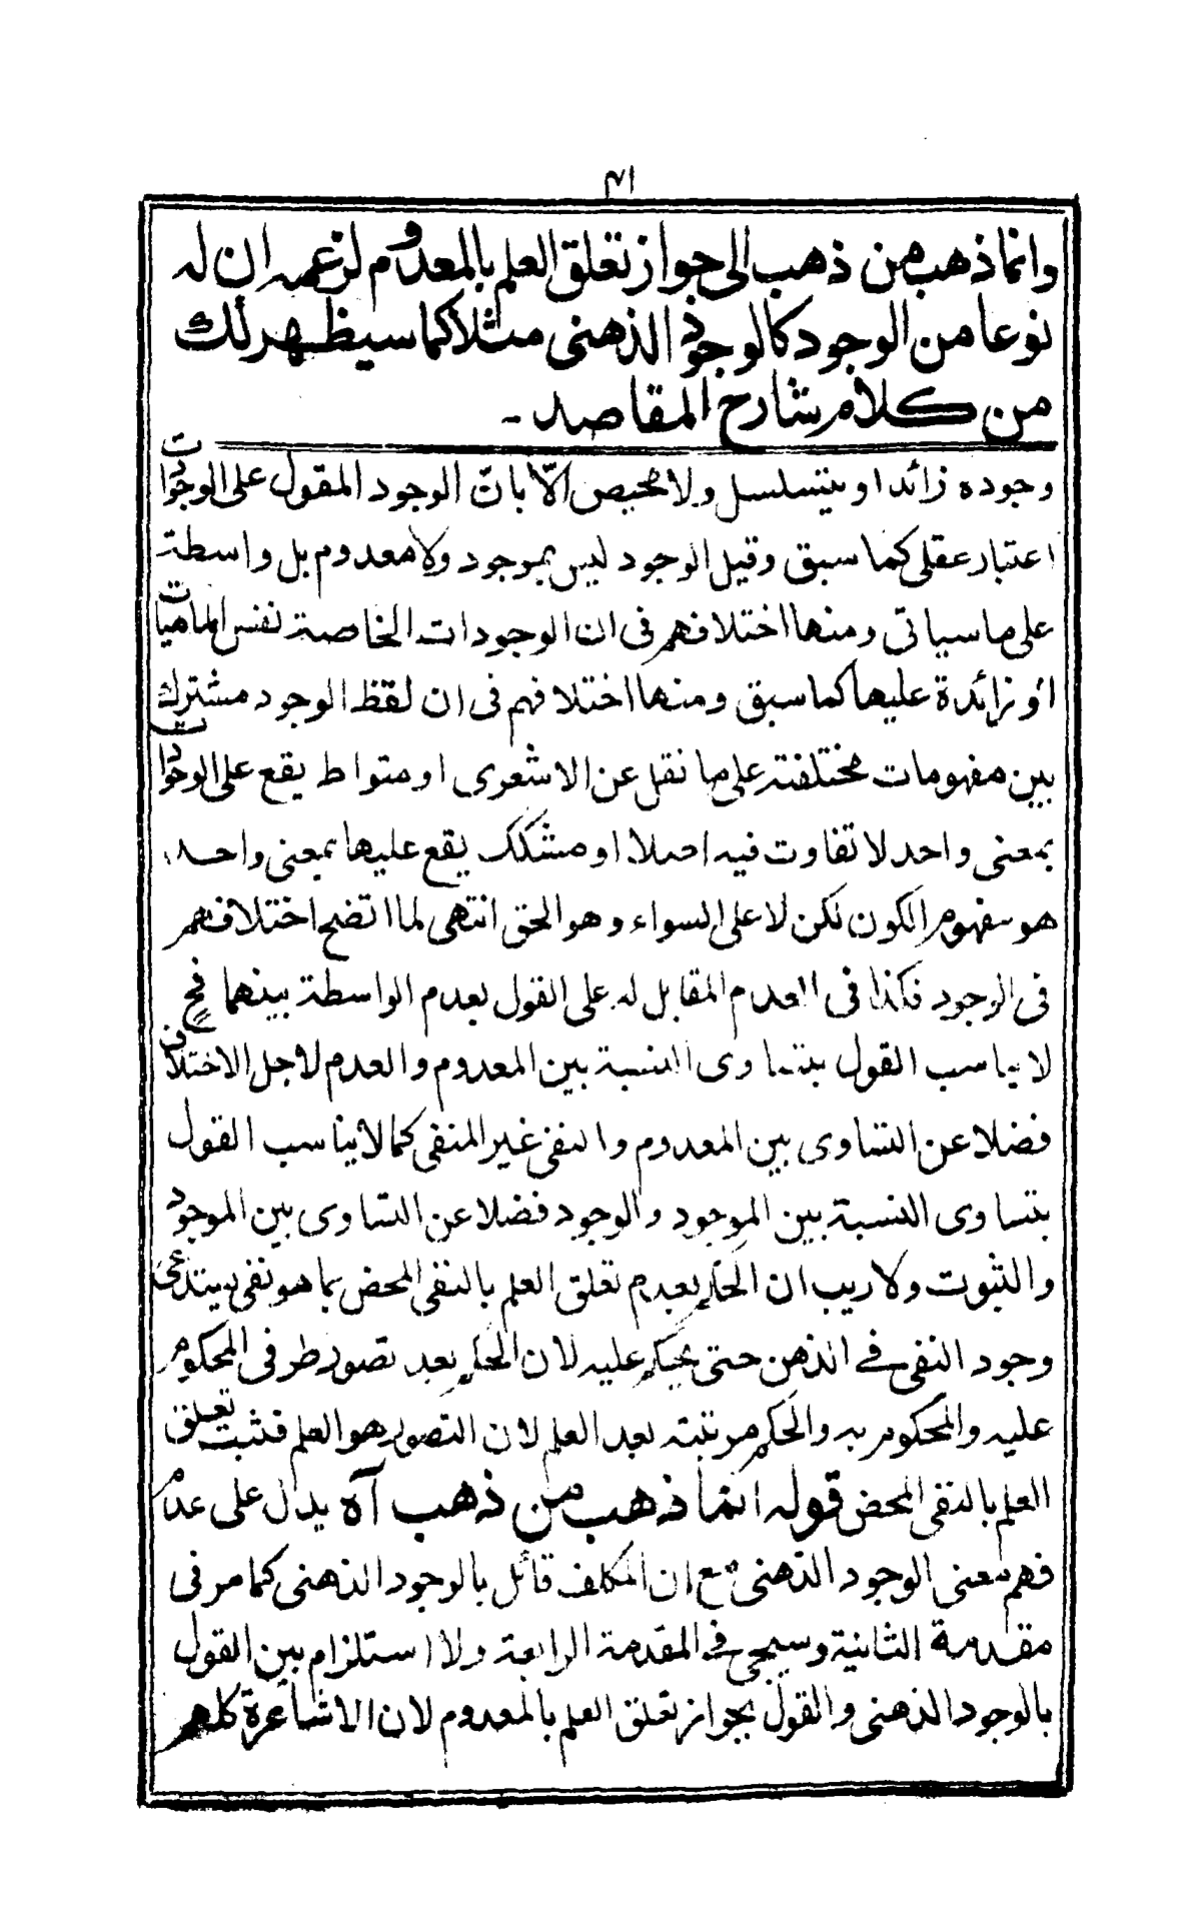 ٤١
وانما ذهب من ذهب الى جواز تعلق العلم بالمعدوم لزعمه ان له
نوعا من الوجود كالوجود الذهنى مثلا كما سيظهر لك
من كلام شارح المقاصد -
وجوده زائدا ويتسلسل ولا محيص الّا بانّ الوجود المقول على الوجودات
اعتبار عقلى كما سبق وقيل الوجود ليس بموجود ولا معدوم بل واسطة
على ما سياتى ومنها اختلافهم فى ان الوجودات الخاصة نفس الماهيات
او زائدة عليها كما سبق ومنها اختلافهم فى ان لفظ الوجود مشترك
بين مفهومات مختلفة على ما نقل عن الاشعرى او متواط يقع على الوجودات
بمعنى واحد لا تفاوت فيه اصلا او مشكك يقع عليها بمعنى واحد
هو مفهوم الكون لكن لا على السواء وهو الحق انتهى لما اتضح اختلافهم
فى الوجود فكذا فى العدم المقابل له على القول بعدم الواسطة بينهما فح
لا يناسب القول بتساوى النسبة بين المعدوم والعدم لاجل الاختلاف
فضلا عن التساوى بين المعدوم والنفى غير المنفى كما لا يناسب القول
بتساوى النسبة بين الموجود والوجود فضلا عن التساوى بين الموجود
والثبوت ولا ريب ان الحكم بعدم تعلق العلم بالنفى المحض بما هو نفى يستدعى
وجود النفى فى الذهن حتى يحكم عليه لان الحكم بعد تصور طرفى المحكوم
عليه والمحكوم به والحكم مرتبته بعد العلم لان التصور هو العلم فثبت تعلق
العلم بالنفى المحض قوله انما ذهب من ذهب آه يدل على عدم
فهم معنى الوجود الذهنى مع ان المكلف قائل بالوجود الذهنى كما مر فى
مقدمة الثانية وسيجئ فى المقدمة الرابعة ولا استلزام بين القول
بالوجود الذهنى والقول بجواز تعلق العلم بالمعدوم لان الاشاعرة كلهم